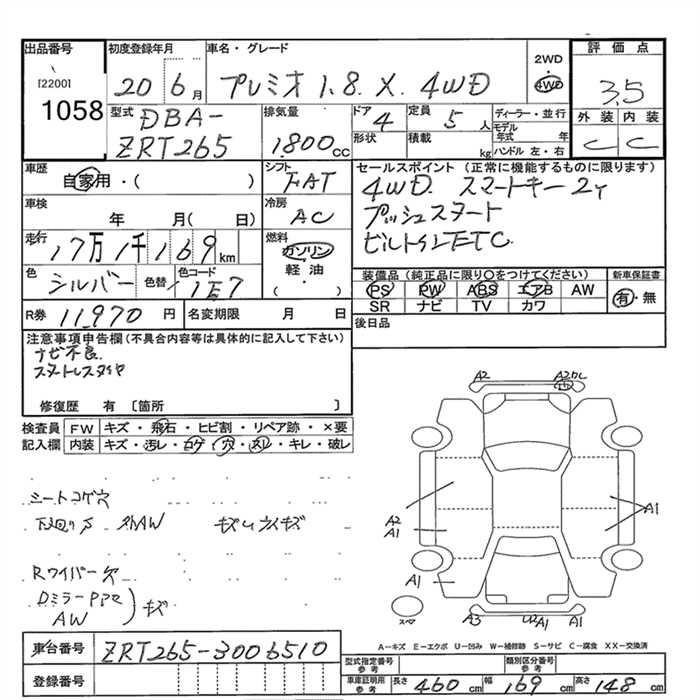 出品番号
[2200]
1058
初度登録年月
20年6月
車名・グレード
プレミオ 1.8 X 4WD
2WD
4WD
評価点
3.5
外装 内装
C C
型式
DBA-
ZRT265
排気量
1800cc
ドア
4
形状
定員
5人
積載
kg
ディーラー・並行
モデル年式 年
ハンドル 左・右
車歴
自家用・( )
シフト
FAT
セールスポイント(正常に機能するものに限ります)
4WD スマートキー2ケ
プッシュスタート
ビルトインETC
車検
年 月( 日)
冷房
AC
走行
17万1千169km
燃料
ガソリン
軽油
・
( )
色
シルバー
色替
色コード
1E7
装備品(純正品に限り○をつけてください)
PS PW ABS エアB AW
SR ナビ TV カワ
新車保証書
有・無
R券
11970円
名変期限 月 日
後日品
注意事項申告欄(不具合内容等は具体的に記入して下さい)
ナビ不良
スタットレスタイヤ
修復歴 有〔箇所 〕
検査員
記入欄
FW キズ・飛石・ヒビ割・リペア跡・×要
内装 キズ・汚レ・コゲ・穴・スレ・キレ・破レ
シートコゲ穴
下廻りサ
外AW
キズウスキズ
Rワイパー欠
DミラーPアア
AW
キズ
A2
A2
A2
A1
A1
A1
スペア
A3
A1
A1
A-キズ E-エクボ U-凹み W-補修跡 S-サビ C-腐食 XX-交換済
車台番号
ZRT265-3006510
登録番号
型式指定番号
参考
類別区分番号
参考
車庫証明用
参考
長さ 460cm 幅 169cm 高さ 148cm